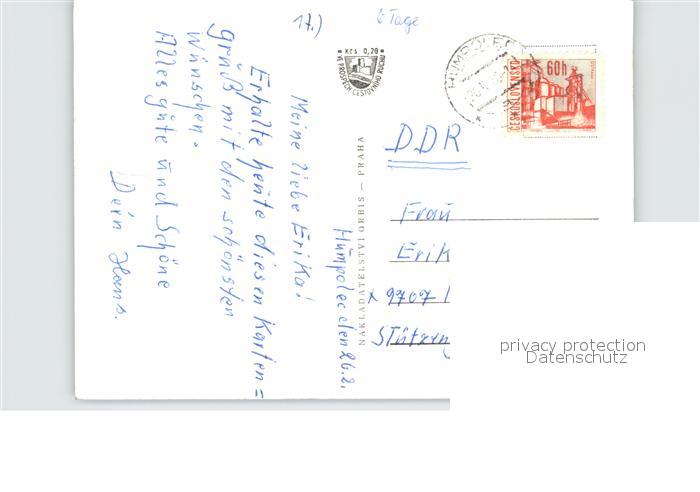 17.)
6 Tage
Kčs 0,20
VE PROSPĚCH CESTOVNÍHO RUCHU
HUMPOLEC
ČESKOSLOVENSKO
60h
Humpolec den 26.2.
Meine liebe Erika!
Erhalte heute diesen Karten=
grüß mit den schönsten
Wünschen.
Alles gute und Schöne
Dein Hans.
NAKLADATELSTVÍ ORBIS — PRAHA
DDR
Frau
Erik
x 9707 1
Stützen
privacy protection
Datenschutz